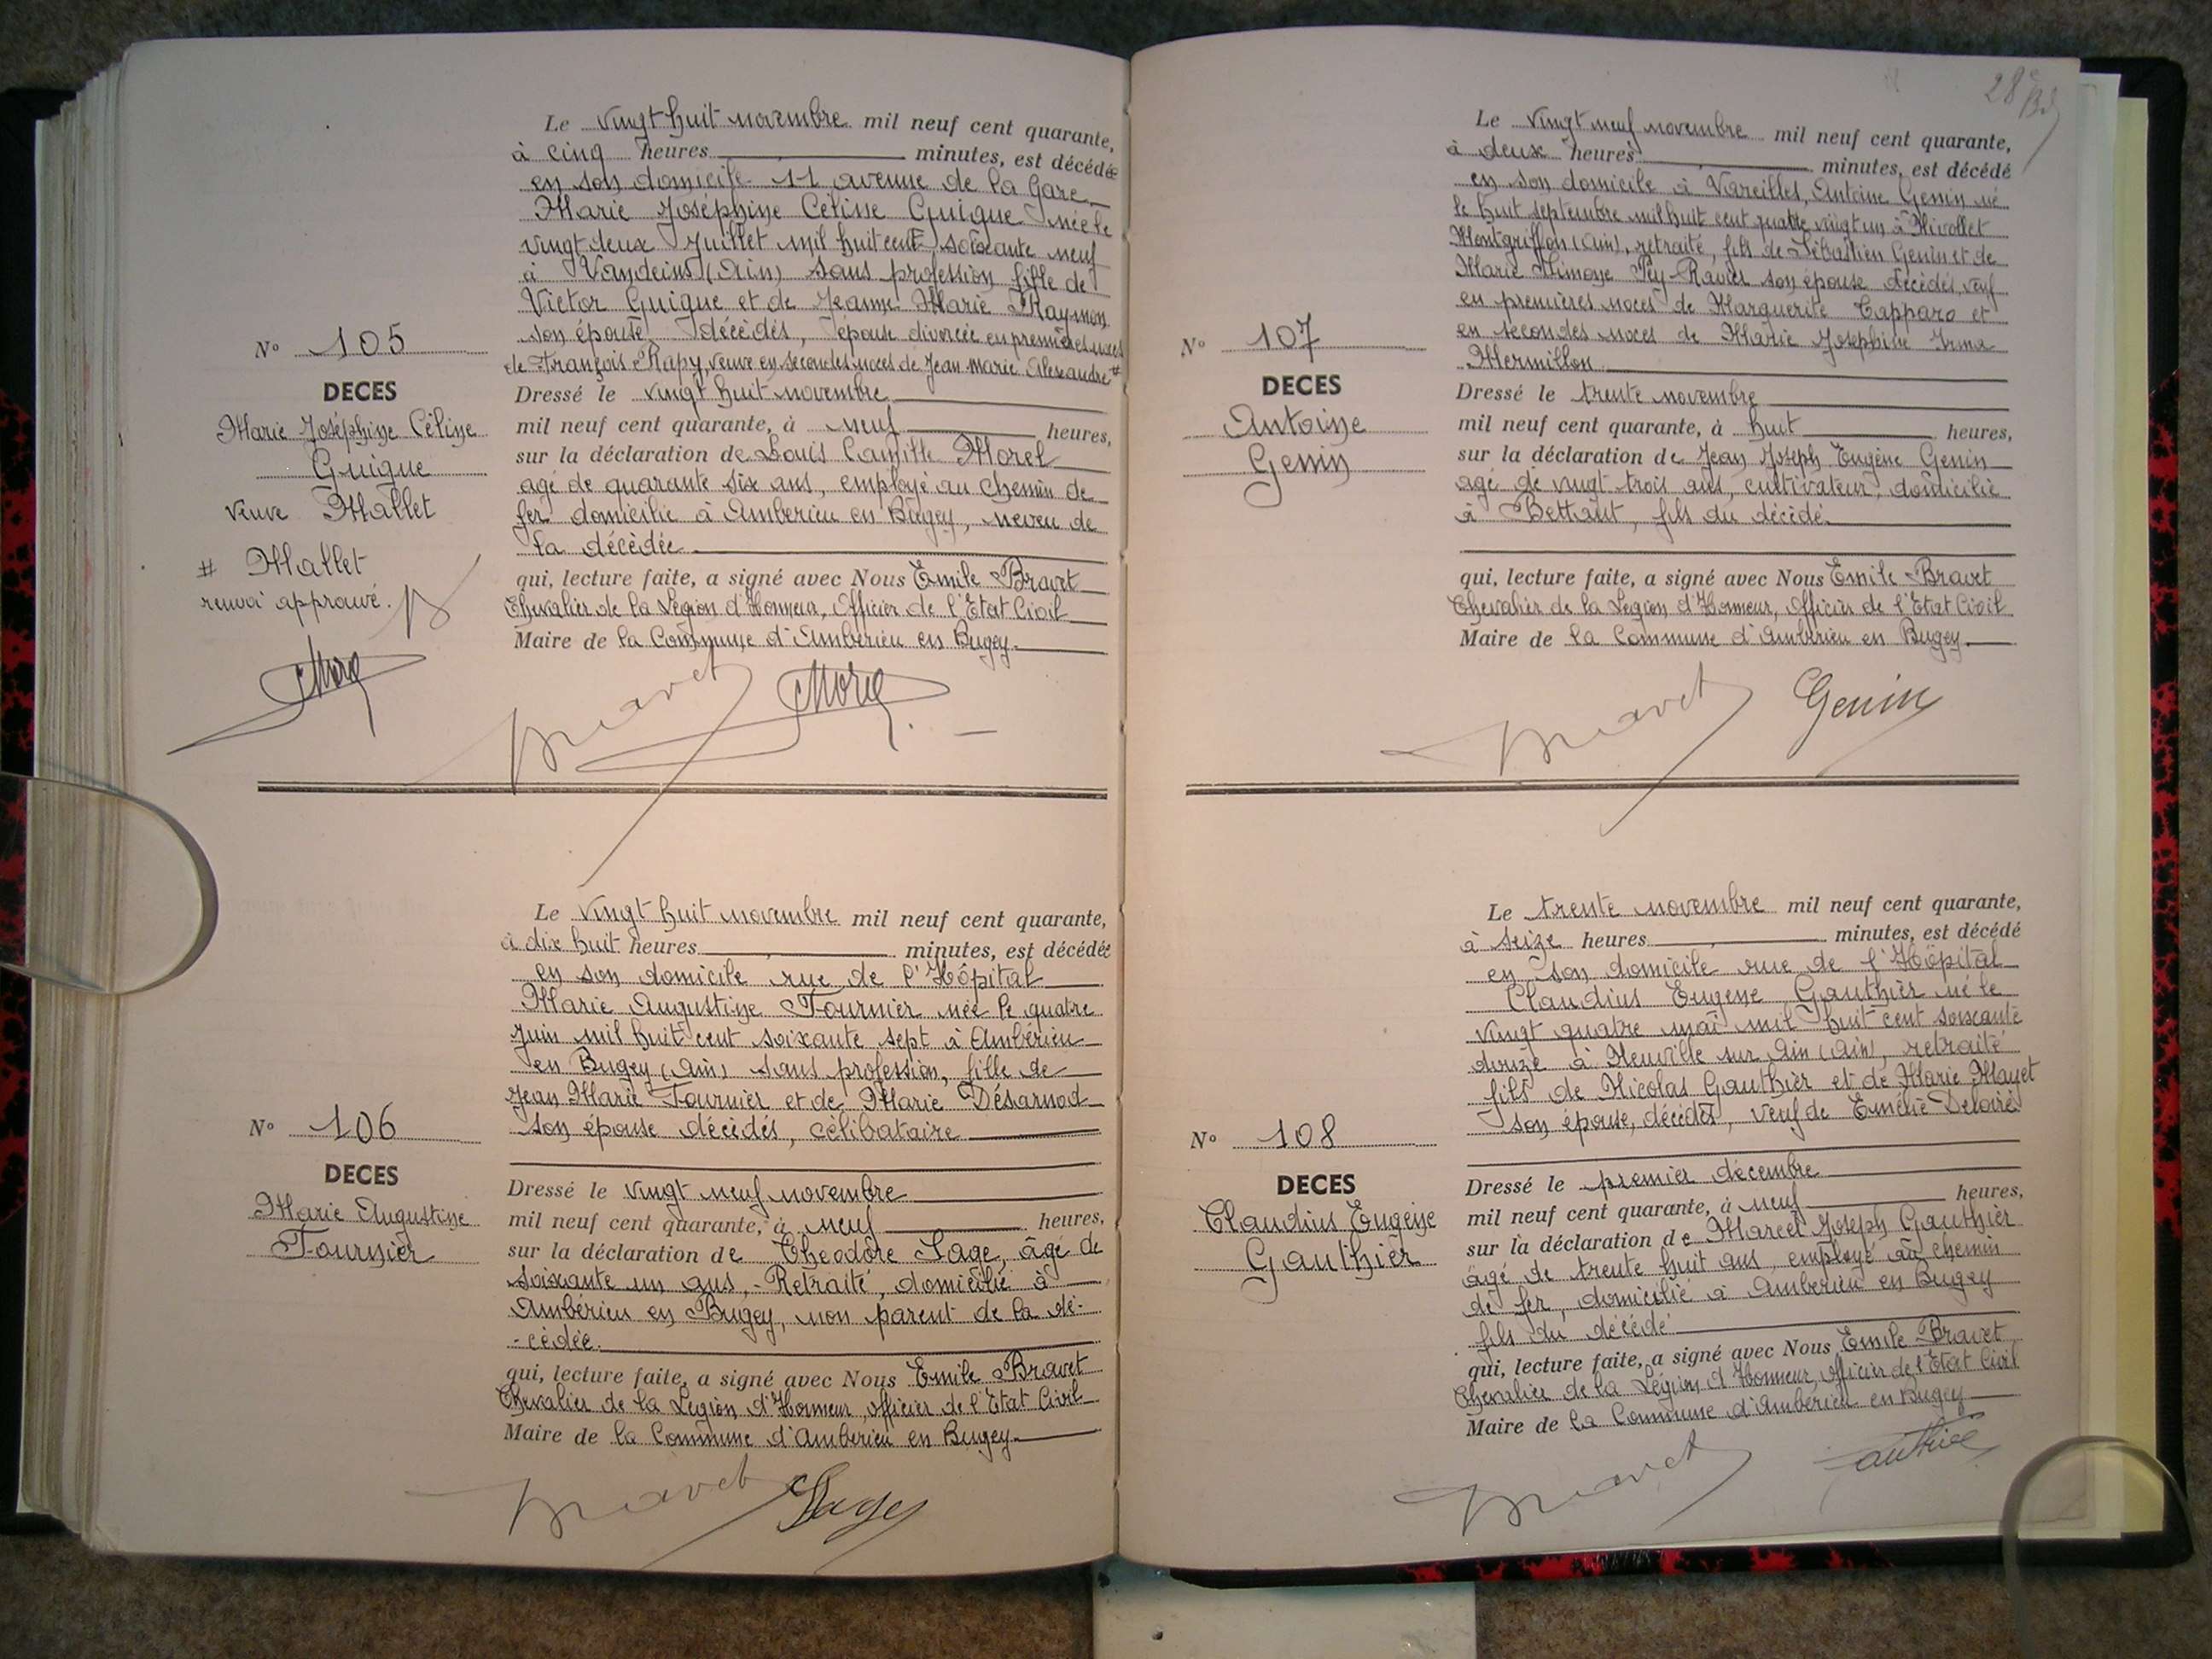 Le vingt huit novembre mil neuf cent quarante,
à cinq heures minutes, est décédée
en son domicile 11 avenue de la Gare
Marie Joséphine Céline Guigue née le
vingt deux Juillet mil huit cent soixante neuf
à Vandeins (Ain) sans profession fille de
Victor Guigue et de Jeanne Marie Raymon
son épouse décédés, épouse divorcée en premières noces
de François Rapy, veuve en secondes noces de Jean Marie Alexandre #
N° 105
DECES
Marie Joséphine Céline
Guigue
veuve Mallet
# Mallet
renvoi approuvé.
Dressé le vingt huit novembre
mil neuf cent quarante, à neuf heures,
sur la déclaration de Louis Camille Morel
agé de quarante six ans, employé au chemin de
fer domicilié à Ambérieu en Bugey, neveu de
la décédée
qui, lecture faite, a signé avec Nous Emile Bravet
Chevalier de la Légion d'Honneur, Officier de l'Etat Civil
Maire de la Commune d'Ambérieu en Bugey.
Bravet Morel
Le vingt huit novembre mil neuf cent quarante,
à dix huit heures minutes, est décédée
en son domicile rue de l'Hôpital
Marie Augustine Fournier née le quatre
Juin mil huit cent soixante sept à Ambérieu
en Bugey (Ain) sans profession, fille de
Jean Marie Fournier et de Marie Désarnod
son épouse décédés, célibataire
N° 106
DECES
Marie Augustine
Fournier
Dressé le vingt neuf novembre
mil neuf cent quarante, à neuf heures,
sur la déclaration de Théodore Sage, âgé de
soixante un ans, Retraité, domicilié à
Ambérieu en Bugey, non parent de la dé-
-cédée.
qui, lecture faite, a signé avec Nous Emile Bravet
Chevalier de la Légion d'Honneur, officier de l'Etat Civil
Maire de la Commune d'Ambérieu en Bugey.
Bravet Sage
28
Le vingt neuf novembre mil neuf cent quarante,
à deux heures minutes, est décédé
en son domicile à Vareilles, Antoine Genin né
le huit septembre mil huit cent quatre vingt un à Nivollet
Montgriffon (Ain), retraité, fils de Sébastien Genin et de
Marie Simone Pey-Ravier son épouse décédés, veuf
en premières noces de Marguerite Capparo et
en secondes noces de Marie Josephine Irma
Mermillon
N° 107
DECES
Antoine
Genin
Dressé le trente novembre
mil neuf cent quarante, à huit heures,
sur la déclaration de Jean Joseph Eugène Genin
agé de vingt trois ans, cultivateur, domicilié
à Bettant, fils du décédé.
qui, lecture faite, a signé avec Nous Emile Bravet
Chevalier de la Légion d'Honneur, Officier de l'Etat Civil
Maire de la Commune d'Ambérieu en Bugey.
Bravet Genin
Le trente novembre mil neuf cent quarante,
à seize heures minutes, est décédé
en son domicile rue de l'Hôpital
Claudius Eugène Gauthier né le
vingt quatre mai mil huit cent soixante
douze à Neuville sur Ain (Ain), retraité
fils de Nicolas Gauthier et de Marie Mayet
son épouse, décédés, veuf de Emélie Deloire
N° 108
DECES
Claudius Eugène
Gauthier
Dressé le premier décembre
mil neuf cent quarante, à neuf heures,
sur la déclaration de Marcel Joseph Gauthier
âgé de trente huit ans, employé au chemin
de fer, domicilié à Ambérieu en Bugey
fils du décédé
qui, lecture faite, a signé avec Nous Emile Bravet
Chevalier de la Légion d'Honneur, officier de l'Etat Civil
Maire de la Commune d'Ambérieu en Bugey
Bravet Gauthier